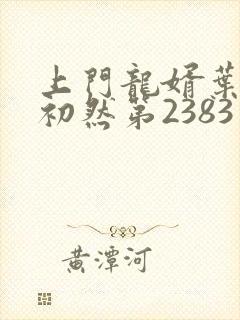 上門龍婿葉
初然第2383
黃潭河